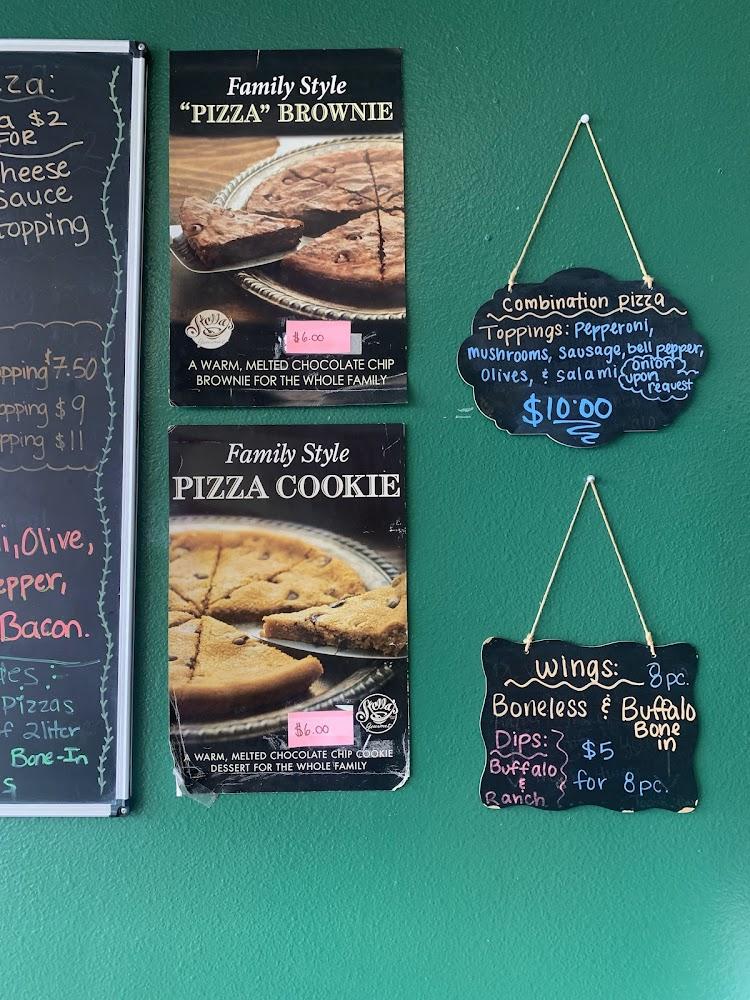 za:
a $2
FOR
heese
Sauce
topping
pping $7.50
opping $9
pping $11
i, Olive,
epper,
Bacon.
es:
Pizzas
f 2liter
Bone-In
s
Family Style
"PIZZA" BROWNIE
Stella's
$6.00
A WARM, MELTED CHOCOLATE CHIP
BROWNIE FOR THE WHOLE FAMILY
Family Style
PIZZA COOKIE
Stella's
Gourmet
$6.00
A WARM, MELTED CHOCOLATE CHIP COOKIE
DESSERT FOR THE WHOLE FAMILY
Combination pizza
Toppings: Pepperoni,
mushrooms, Sausage, bell pepper,
Olives, & salami
onion
upon
request
$10.00
Wings: 8 pc.
Boneless & Buffalo
Bone
in
Dips:
Buffalo
&
Ranch
$5
for 8pc.